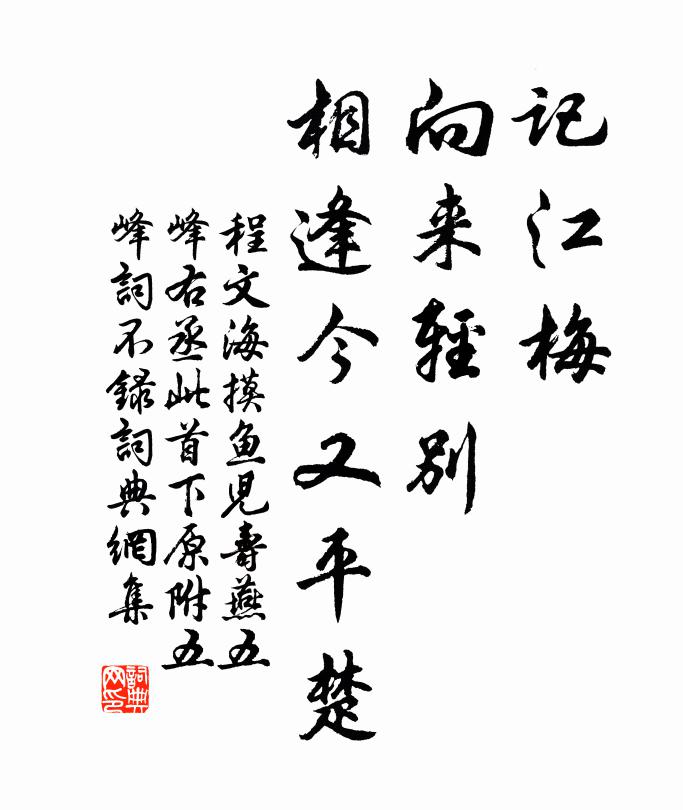 记江梅
向来轻别
相逢今又平楚
程文海摸鱼児寿燕五
峰右丞此首下原附五
峰詞不録詞典網集
詞典网印